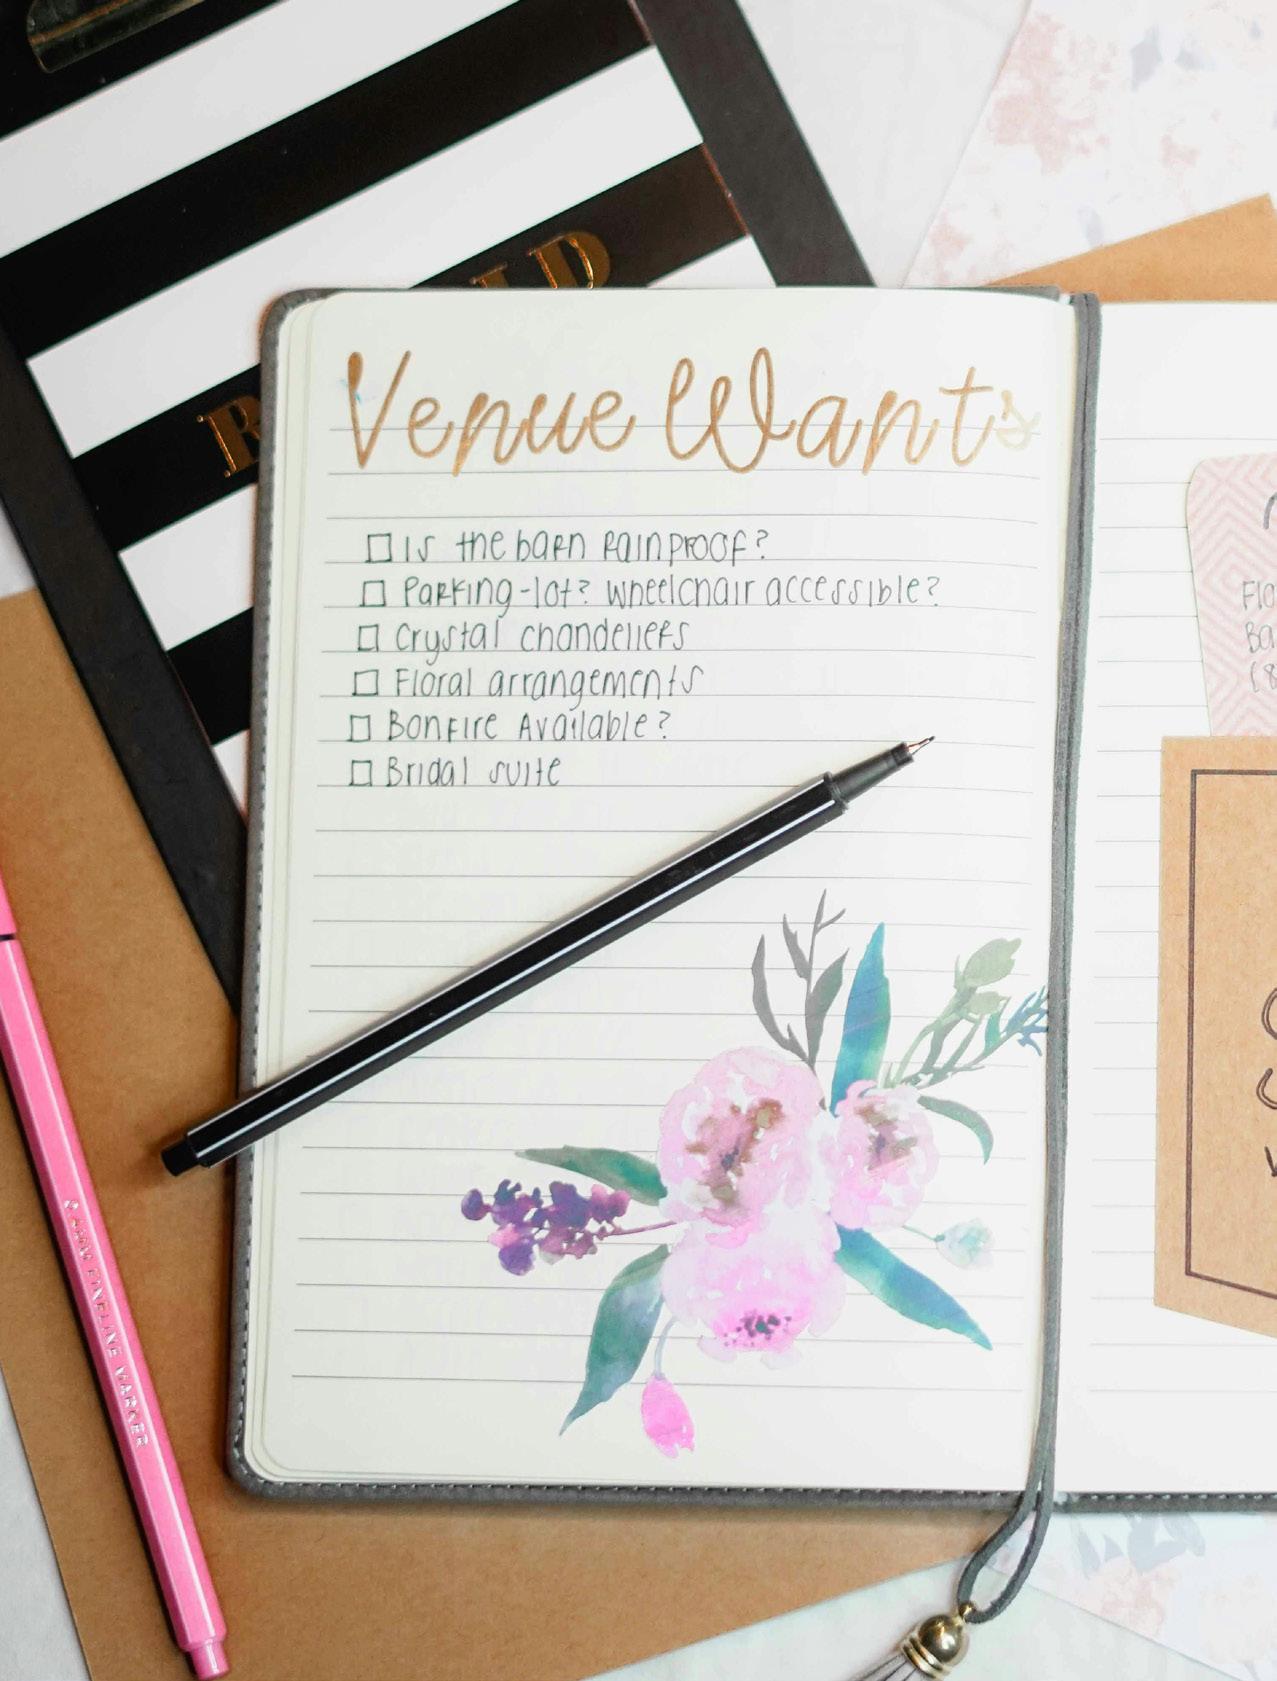 Venue Wants
Is the barn rainproof?
Parking-lot? wheelchair accessible?
Crystal chandeliers
Floral arrangements
Bonfire Available?
Bridal suite
FINELINE MARKER